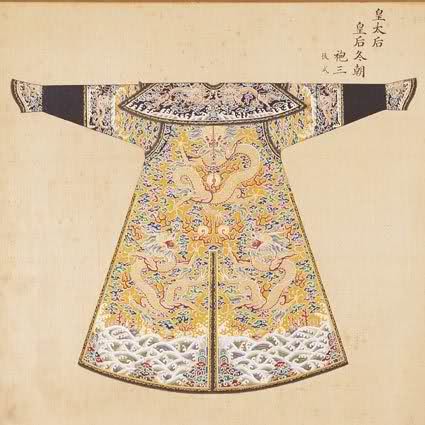 皇太后
皇后冬朝
袍三
後式